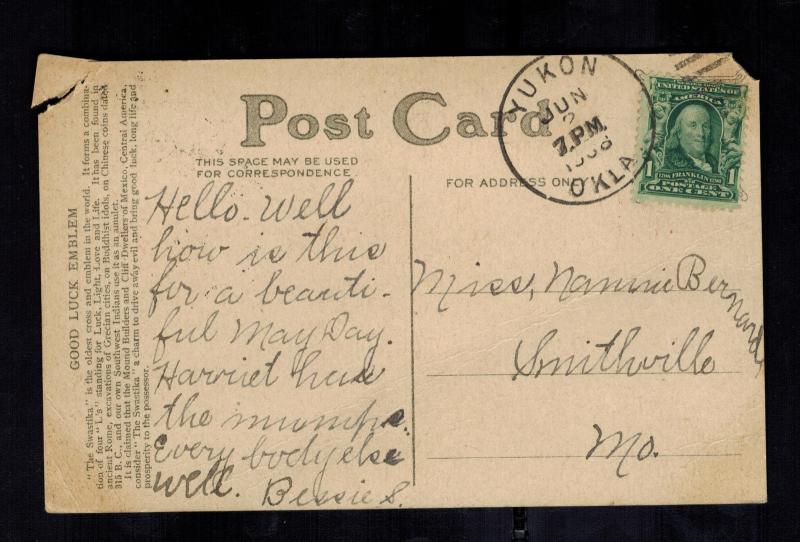 GOOD LUCK EMBLEM
"The Swastika" is the oldest cross and emblem in the world. It forms a combina-
tion of four "L's" standing for Luck, Light, Love and Life. It has been found in
ancient Rome, excavations of Grecian cities, on Buddhist idols, on Chinese coins dated
315 B. C., and our own Southwest Indians use it as an amulet.
It is claimed that the Mound Builders and Cliff Dwellers of Mexico, Central America,
consider "The Swastika" a charm to drive away evil and bring good luck, long life and
prosperity to the possessor.
Post Card
THIS SPACE MAY BE USED
FOR CORRESPONDENCE
FOR ADDRESS ONL
Hello. Well
how is this
for a beauti-
ful May Day.
Harriet have
the mumps.
Every body else
well.
Bessie S.
YUKON
JUN
2
7.PM
1908
OKLA.
UNITED STATES OF
AMERICA
1
1706 FRANKLIN 1790
POSTAGE
ONE CENT
1
Miss, Nannie Bernard,
Smithville
Mo.